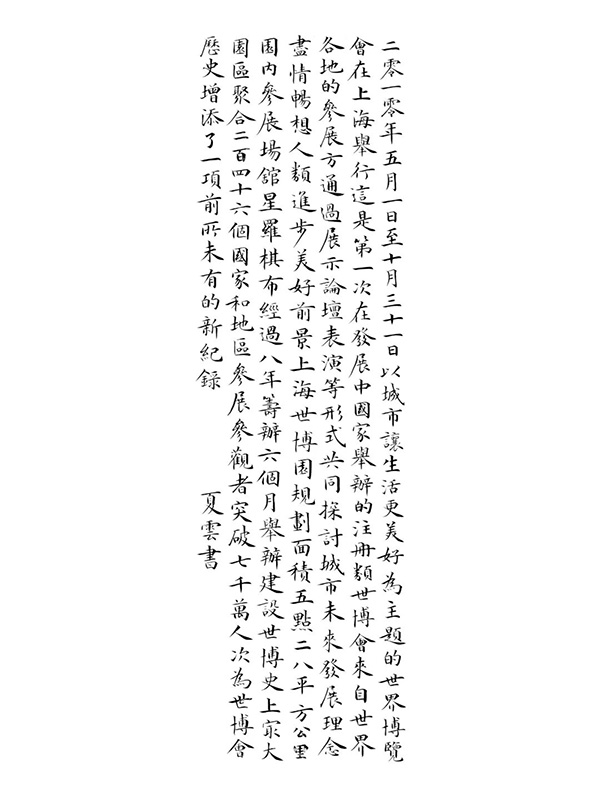 二零一零年五月一日至十月三十一日以城市讓生活更美好為主題的世界博覽
會在上海舉行這是第一次在發展中國家舉辦的注冊類世博會來自世界
各地的參展方通過展示論壇表演等形式共同探討城市未來發展理念
盡情暢想人類進步美好前景上海世博園規劃面積五點二八平方公里
園內參展場館星羅棋布經過八年籌辦六個月舉辦建設世博史上最大
園區聚合二百四十六個國家和地區參展參觀者突破七千萬人次為世博會
歷史增添了一項前所未有的新紀錄
夏雲書